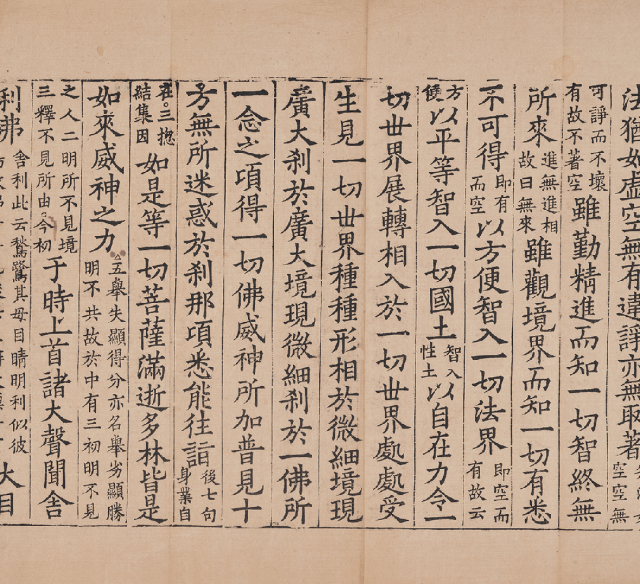 法猶如虛空無有違諍亦無取著 空空無
可諍而不壞 有故不著空 雖勤精進而知一切智終無
所來 進無進相 故曰無來 雖觀境界而知一切有悉
不可得 即有 而空 以方便智入一切法界 即空而 有故云
方 以平等智入一切國土 智入 性土 以自在力令一
切世界展轉相入於一切世界處處受
生見一切世界種種形相於微細境現
廣大剎於廣大境現微細剎於一佛所
一念之頃得一切佛威神所加普見十
方無所迷惑於剎那頃悉能往詣 後七句 身業自
在。三揔 結集因 如是等一切菩薩滿逝多林皆是
如來威神之力 五舉失顯得分亦名舉劣顯勝 明不共故於中有三初明不見
之人二明所不見境 三釋不見所由今初 于時上首諸大聲聞舍
利弗 舍利此云鶖鷺其母目睛明利似彼 大目